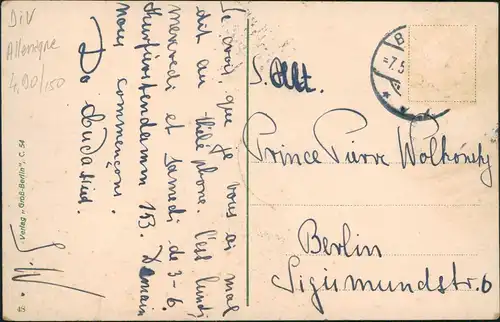 DiV
Allemagne
4,90/150
Je crois, que je vous ai mal
dit au téléphone. C'est lundi
mercredi et samedi de 3-6.
Kurfürstendamm 153. Demain
nous commençons.
Do
S. W.
Verlag „Groß-Berlin", C. 54
48
S. Allt.
Prince Pierre Wolkonsky
Berlin
Sigismundstr. 6
B
-7.5